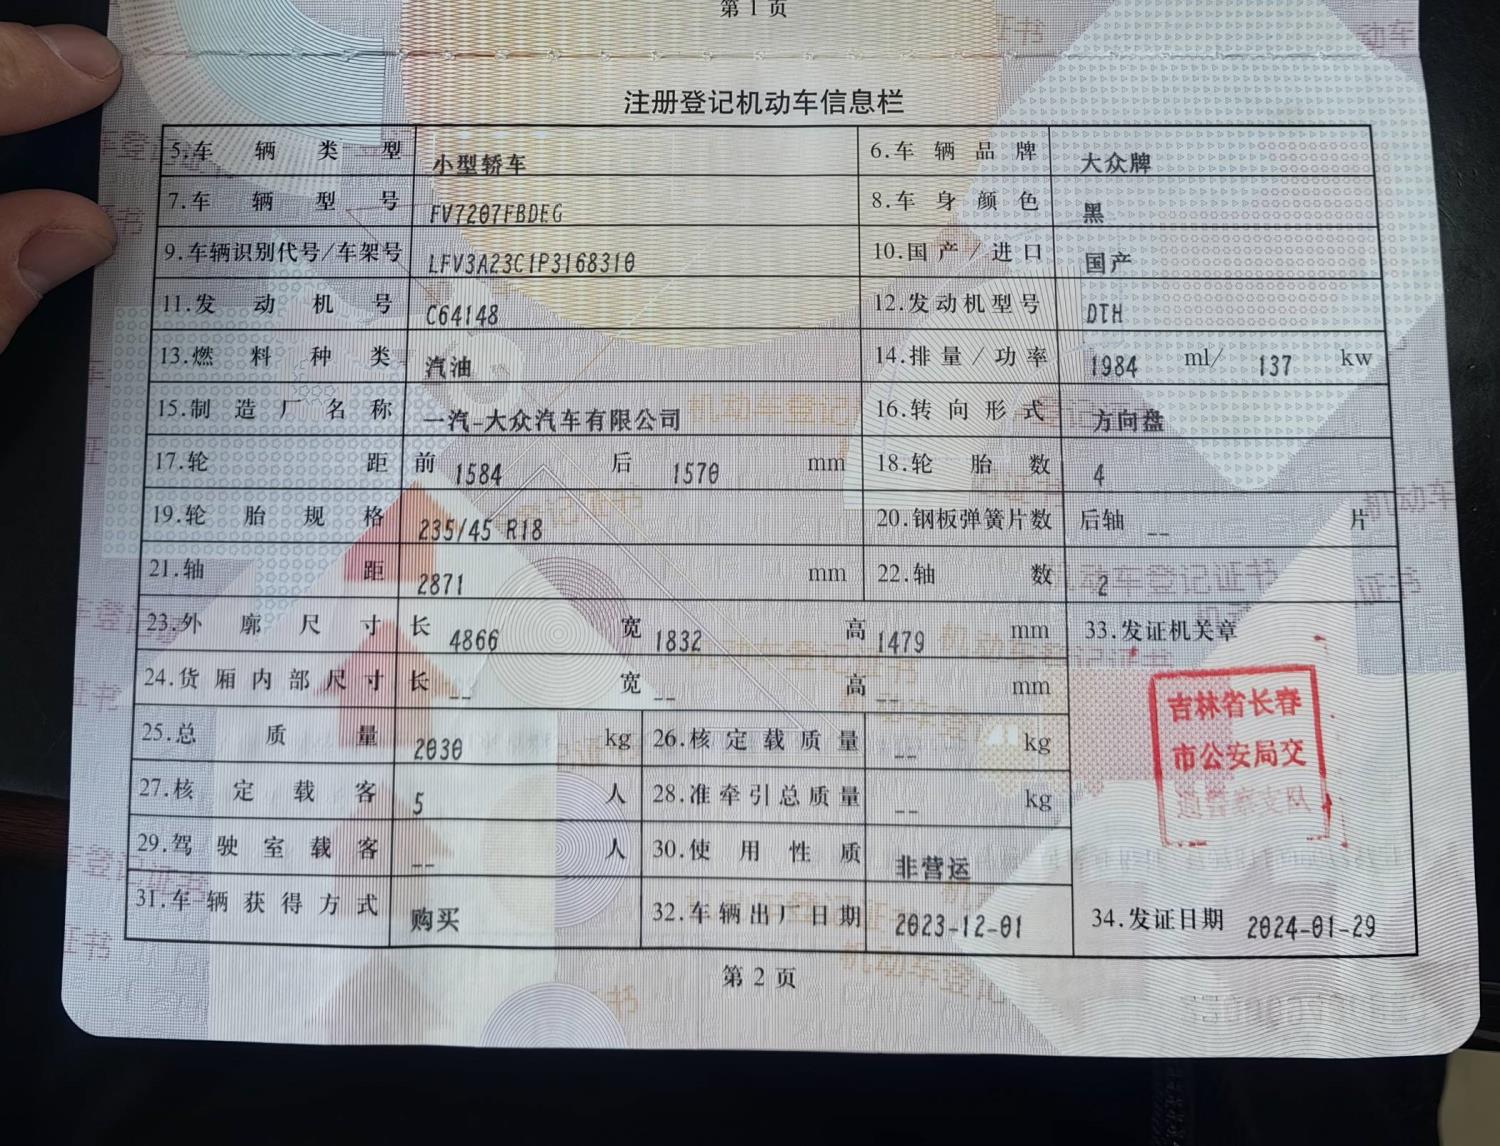 第 1 页
注册登记机动车信息栏
5.车辆类型 小型轿车 6.车辆品牌 大众牌
7.车辆型号 FV7207FBDEG 8.车身颜色 黑
9.车辆识别代号/车架号 LFV3A23C1P3168310 10.国产/进口 国产
11.发动机号 C64148 12.发动机型号 DTH
13.燃料种类 汽油 14.排量/功率 1984 ml/ 137 kw
15.制造厂名称 一汽-大众汽车有限公司 16.转向形式 方向盘
17.轮距 前 1584 后 1570 mm 18.轮胎数 4
19.轮胎规格 235/45 R18 20.钢板弹簧片数 后轴 -- 片
21.轴距 2871 mm 22.轴数 2
23.外廓尺寸 长 4866 宽 1832 高 1479 mm 33.发证机关章
24.货厢内部尺寸 长 -- 宽 -- 高 -- mm
吉林省长春
市公安局交
通警察支队
25.总质量 2030 kg 26.核定载质量 -- kg
27.核定载客 5 人 28.准牵引总质量 -- kg
29.驾驶室载客 -- 人 30.使用性质 非营运
31.车辆获得方式 购买 32.车辆出厂日期 2023-12-01 34.发证日期 2024-01-29
第 2 页